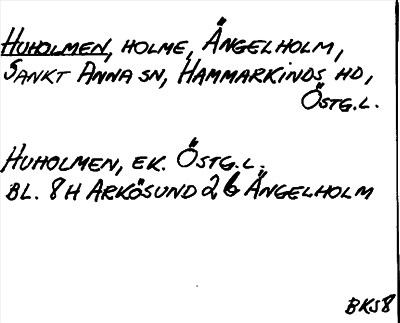 HUHOLMEN, HOLME, ÄNGELHOLM,
SANKT ANNA SN, HAMMARKINDS HD,
ÖSTG.L.
HUHOLMEN, EK. ÖSTG.L.
BL. 8H ARKÖSUND 2 b ÄNGELHOLM
BKS8